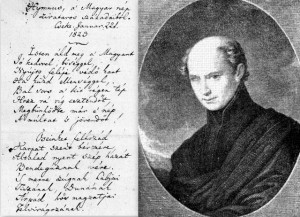 Hymnus, a' Magyar nép
zivataros századaiból
Cseke Januar. 22d.
1823
Isten áldd meg a' Magyart
Jó kedvvel, bőséggel,
Nyújts feléje védő kart
Ha küzd ellenséggel;
Bal sors a' kit régen tép
Hozz rá víg esztendőt,
Megbűnhődte már e' nép
A' múltat 's jövendőt!
Őseinket felhozád
Kárpát szent bérczére,
Általad nyert szép hazát
Bendegúznak vére.
'S merre zúgnak habjai
Tiszának, Dunának,
Árpád hős magzatjai
Felvirágozának.